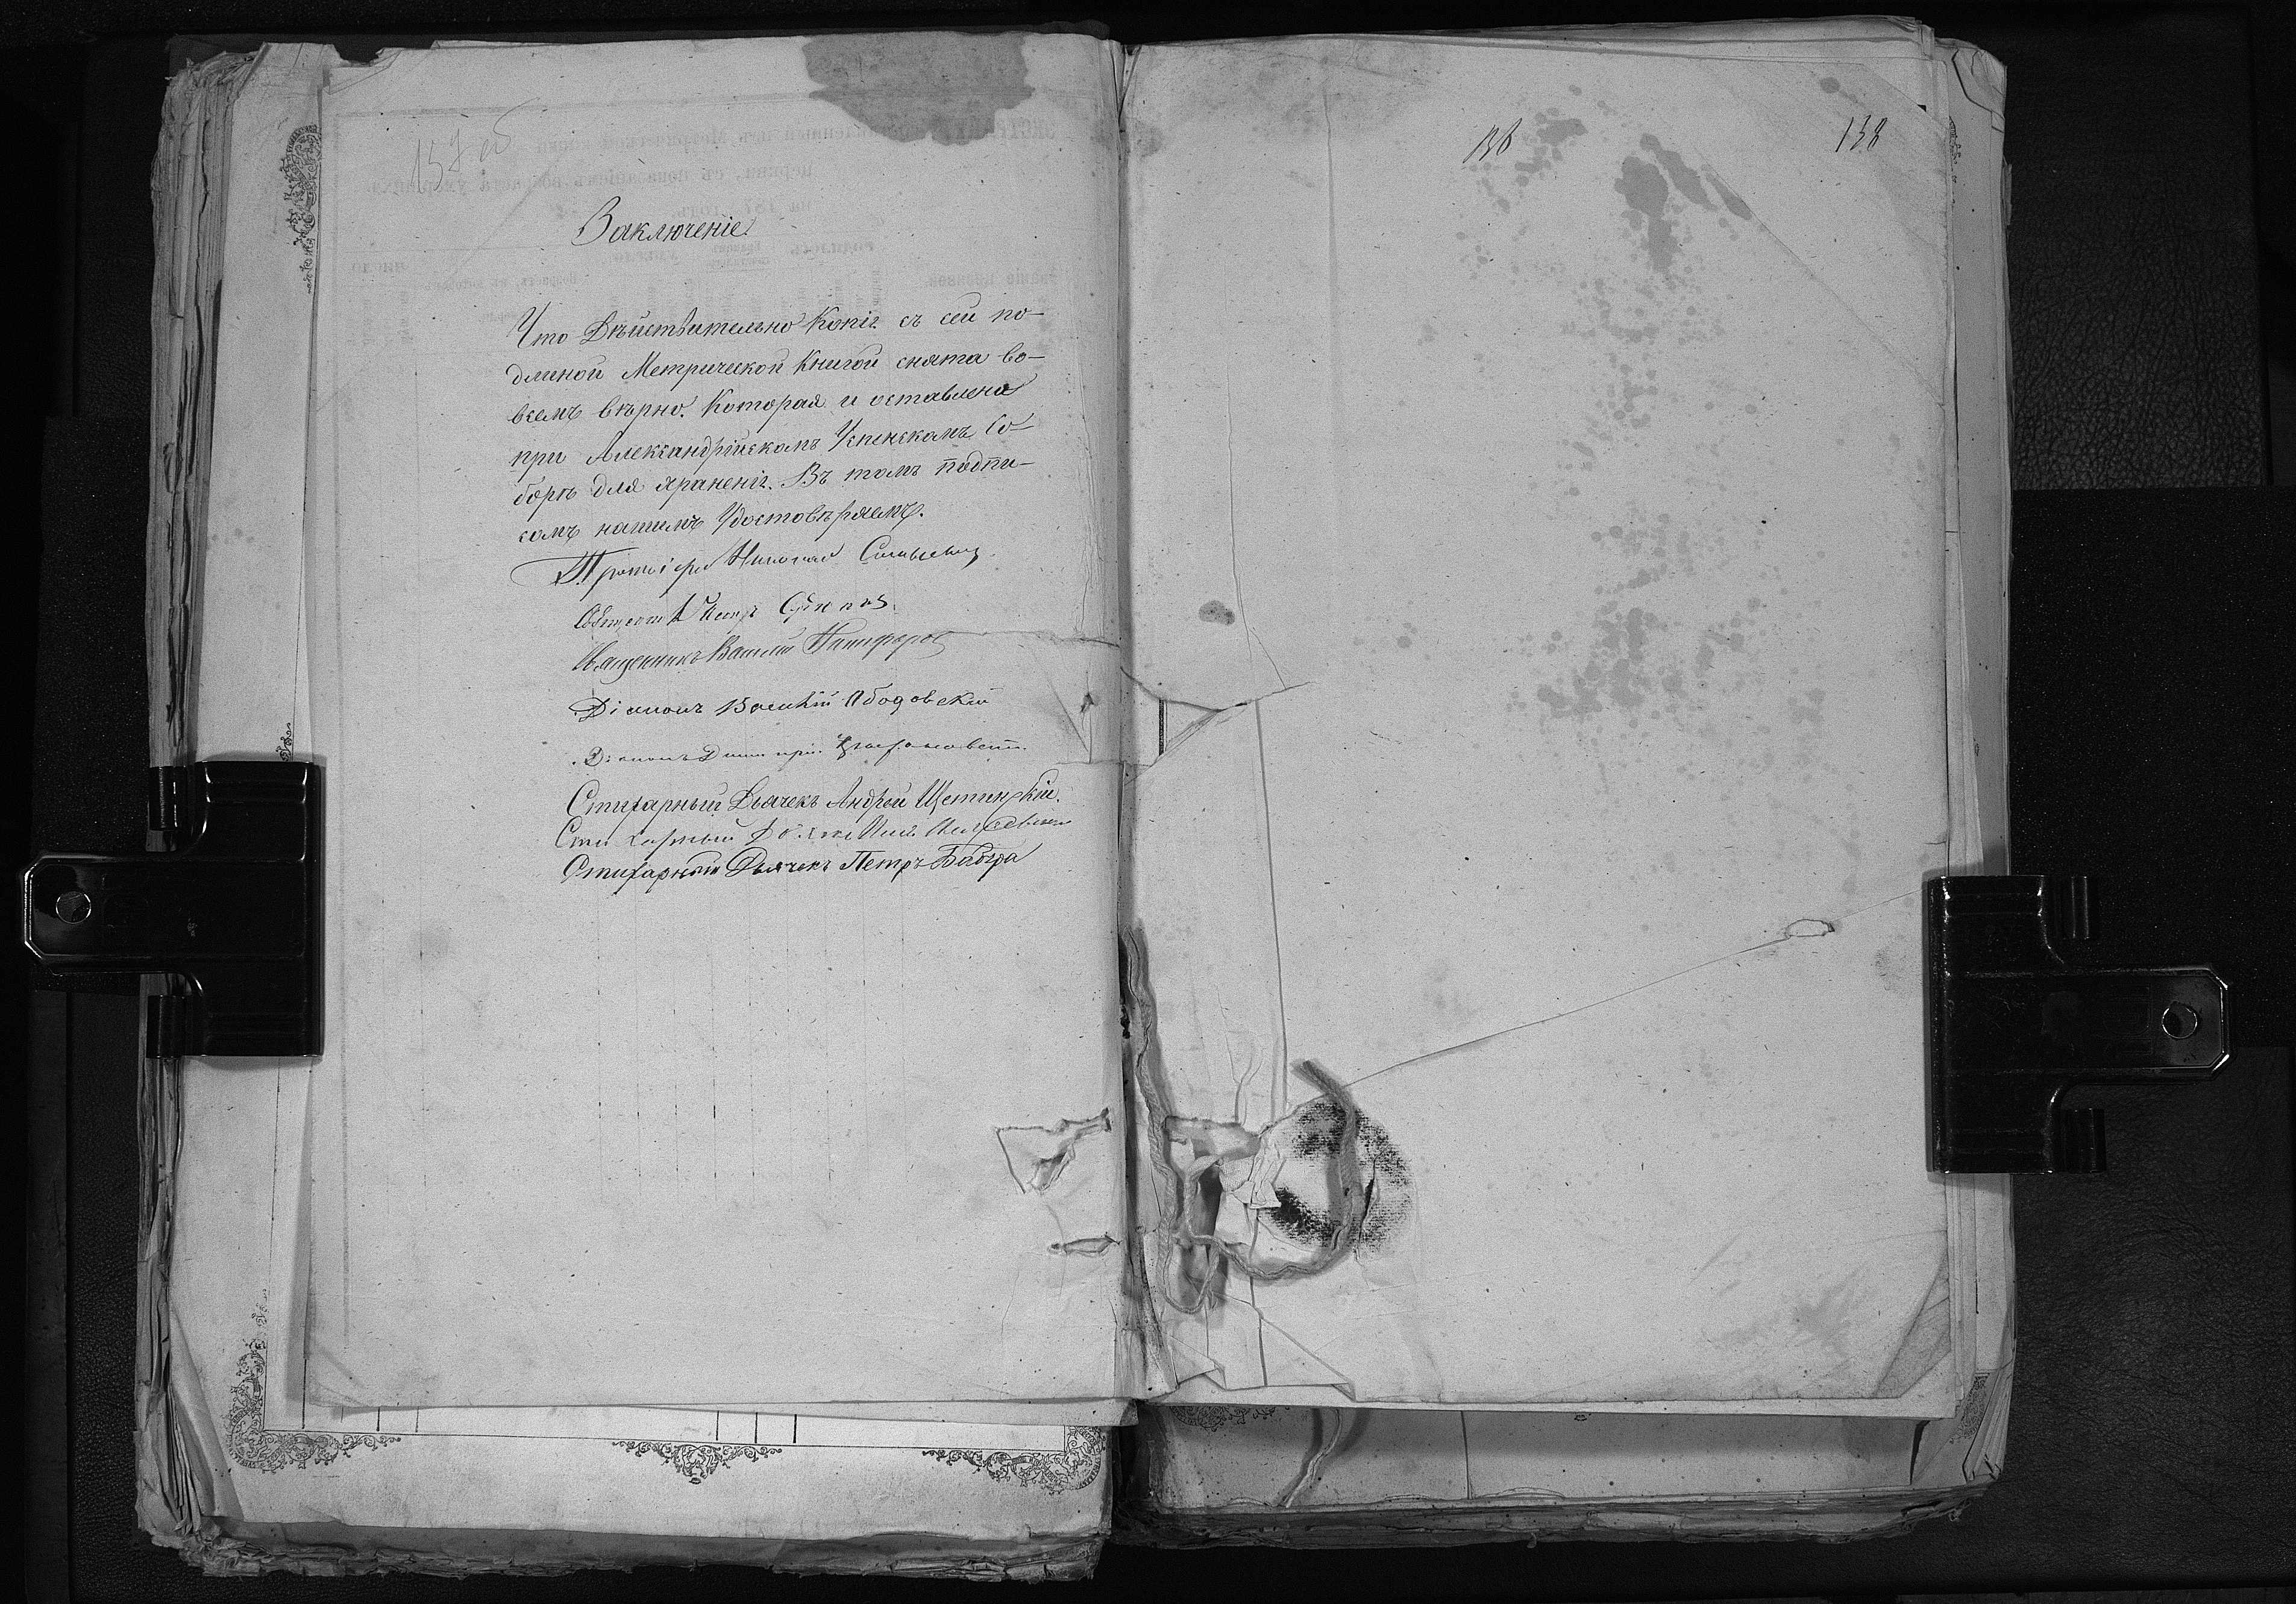 137 об
Заключеніе
Что Дѣйствительно Копія съ сей по-
длиной Метрической Книгой снята во-
всемъ вѣрно. Которая и оставлена
при Александрійскомъ Успенскомъ Со-
борѣ для храненія. Въ томъ подпи-
сомъ нашимъ Удостовѣряемъ.
Протоіерей Николай
Священникъ Василій Никифоров
Діаконъ Василій Ободовскій
Діаконъ Димитрій
Стихарный Дьячекъ Андрей Щетинскій.
Стихарный
Стихарный Дьячекъ Петръ Бабура
136
138